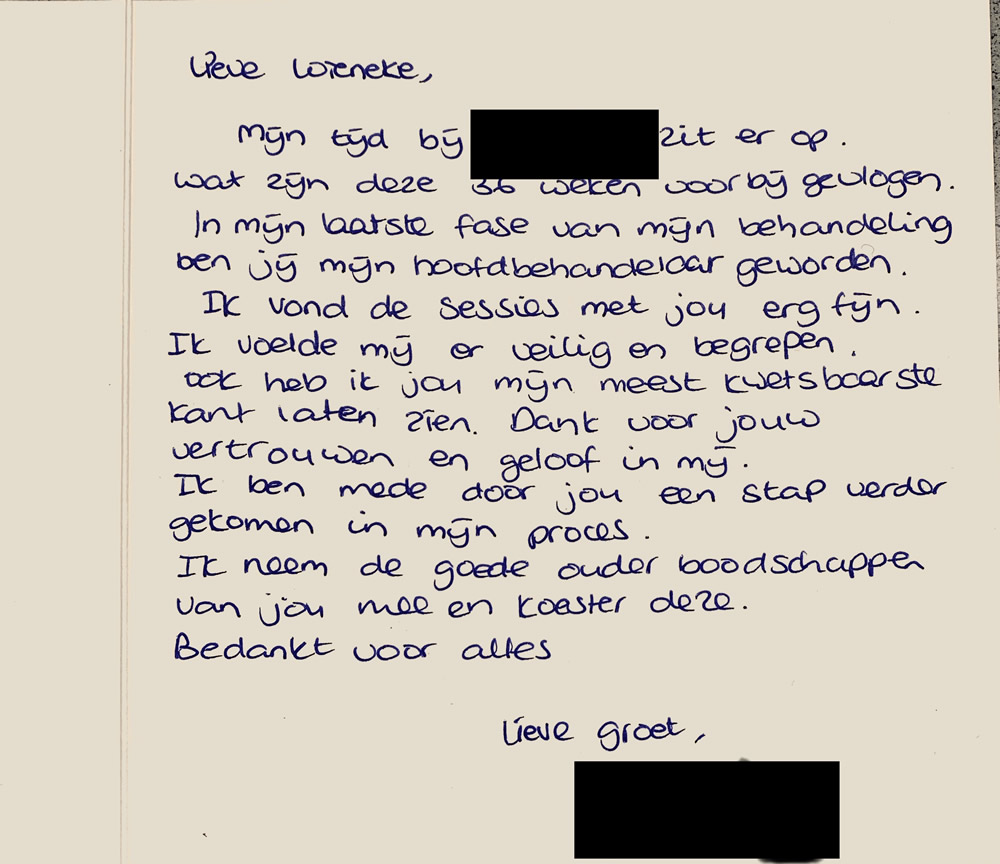 Lieve Wieneke,
Mijn tijd bij zit er op.
wat zijn deze 36 weken voorbij gevlogen.
In mijn laatste fase van mijn behandeling
ben jij mijn hoofdbehandelaar geworden.
Ik vond de sessies met jou erg fijn.
Ik voelde mij er veilig en begrepen.
ook heb ik jou mijn meest kwetsbaarste
kant laten zien. Dank voor jouw
vertrouwen en geloof in mij.
Ik ben mede door jou een stap verder
gekomen in mijn proces.
Ik neem de goede ouder boodschappen
van jou mee en koester deze.
Bedankt voor alles
Lieve groet,